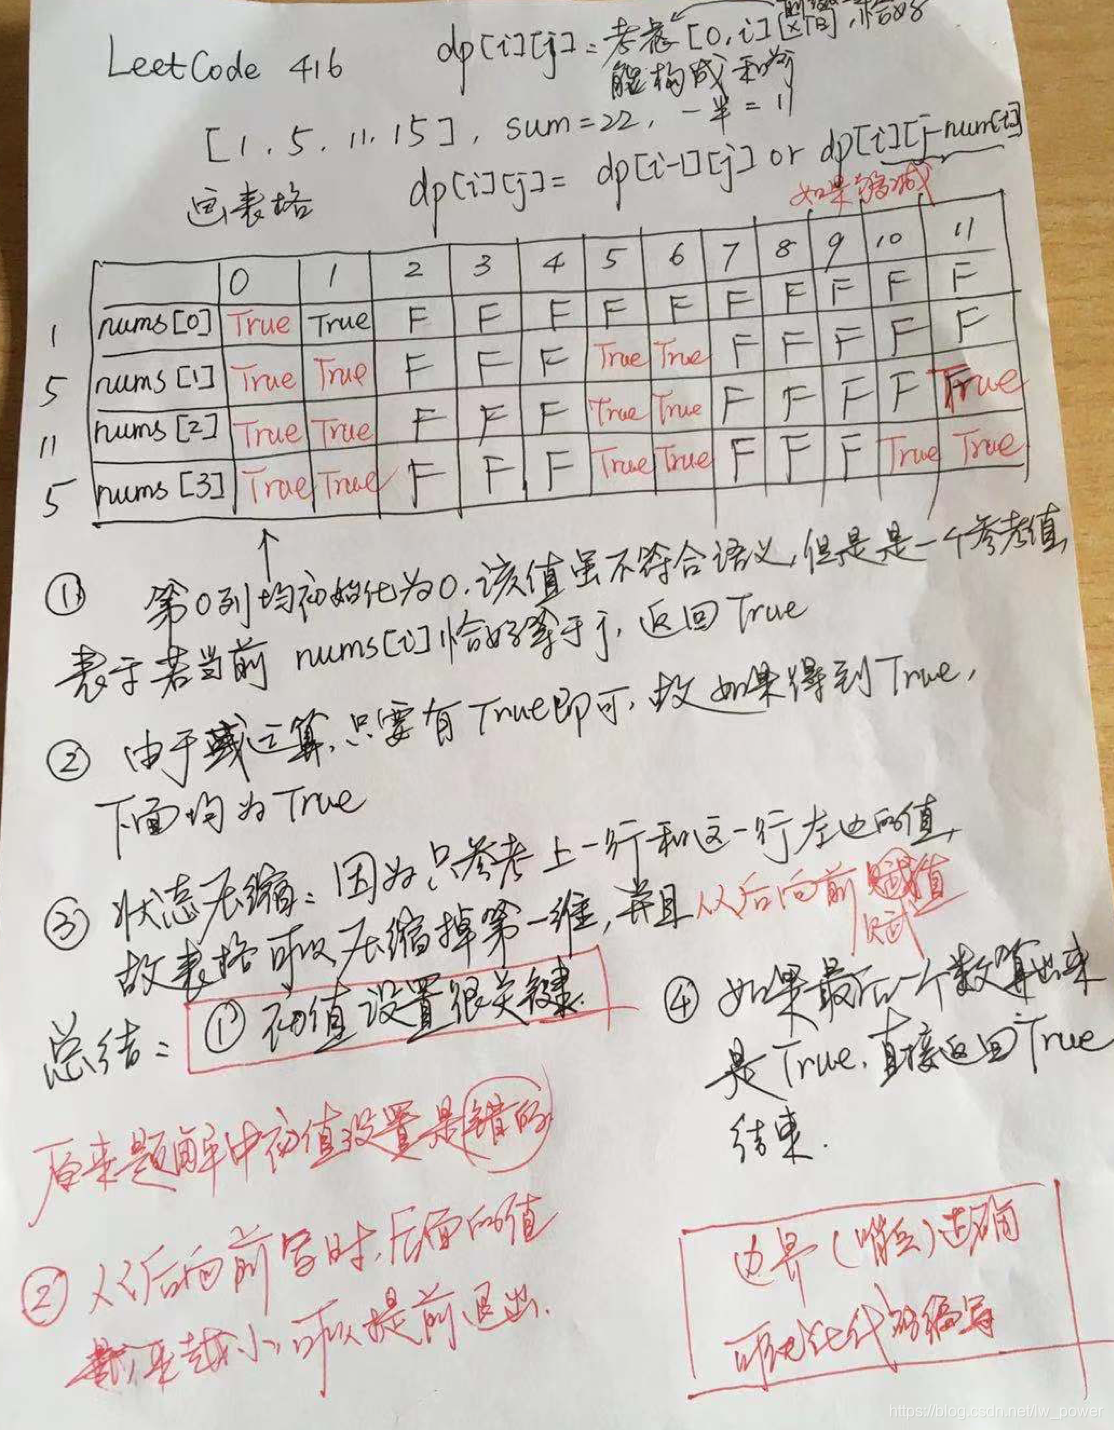 LeetCode 416
dp[i][j] = 考虑[0,i][区间], 恰好
能构成和为
[1.5.11.15], sum=22, 一半=11
画表格 dp[i][j]= dp[i-1][j] or dp[i][j-num[i]]
如果够减
0 1 2 3 4 5 6 7 8 9 10 11
1 nums[0] True True F F F F F F F F F F
5 nums[1] True True F F F True True F F F F F
11 nums[2] True True F F F True True F F F F True
5 nums[3] True True F F F True True F F F True True
① 第0列均初始化为0.该值虽不符合语义,但是是一个参考值,
表于若当前 nums[i]恰好等于j, 返回True
② 由于或运算,只要有True即可,故如果得到True,
下面均为True
③ 状态压缩:因为只参考上一行和这一行左边的值,
故表格可以压缩掉第一维,并且从后向前赋值
赋
总结: ① 初值设置很关键.
④ 如果最后一个数算出来
是True,直接返回True
结束.
原来题解中初值设置是错的
② 从后向前写时,后面的值
越来越小,可以提前退出.
边界(哨兵)正确
可优化代码编写
https://blog.csdn.net/lw_power